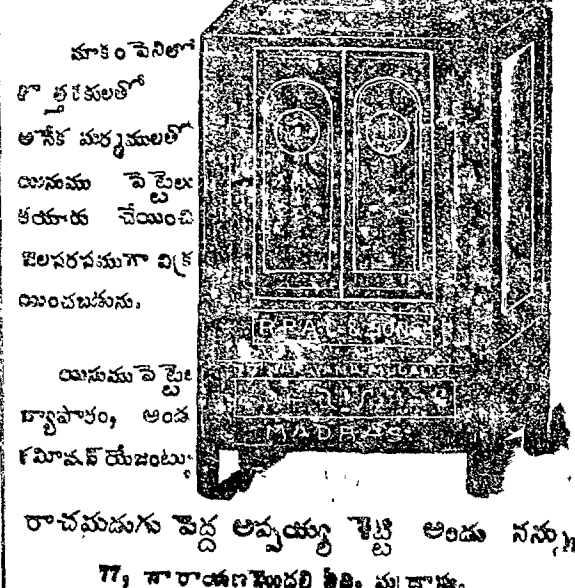 మాకంపెనిలో
క్రొత్తరకులతో
అనేక మర్మములతో
యినుము పెట్టెలు
తయారు చేయించి
జెలసరసముగా విక్ర
యించబడును.
R.P.A.C. & SON
MADRAS
యినుము పెట్టెల
వ్యాపారం, అండ
కమీషన్ యేజంటు
రాచమడుగు పెద్ద అప్పయ్య శెట్టి అండు సన్సు
77, నారాయణ మొదలి వీధి, మద్రాసు.